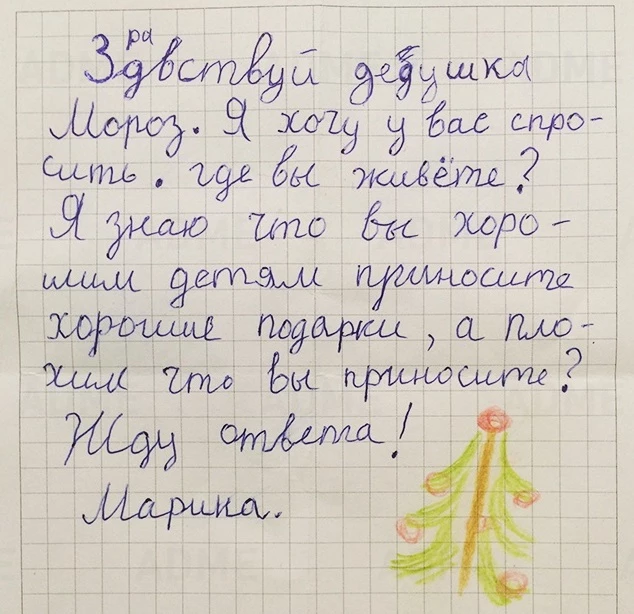 Здравствуй дедушка
Мороз. Я хочу у вас спро-
сить. где вы живёте?
Я знаю что вы хоро-
шим детям приносите
хорошие подарки, а пло-
хим что вы приносите?
Жду ответа!
Марина.